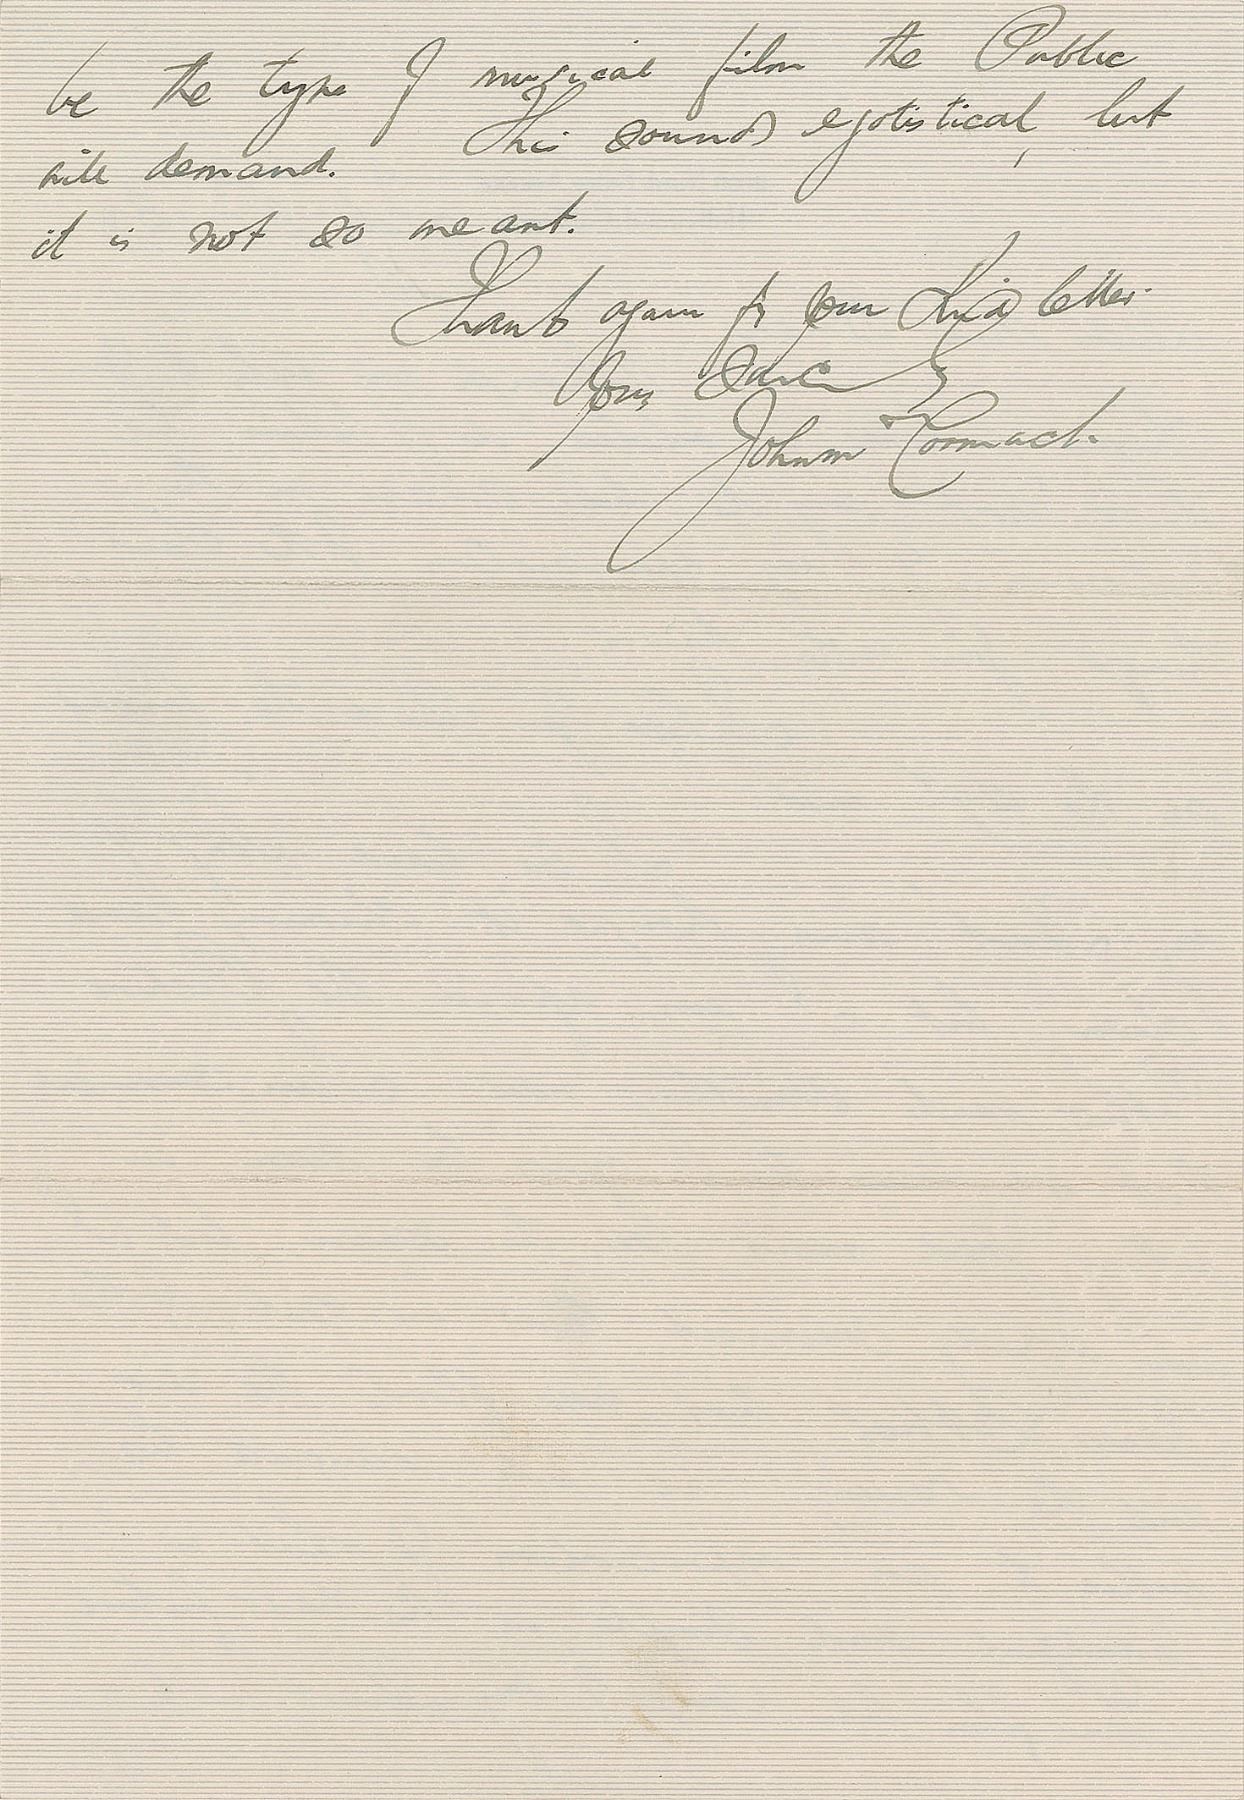 be the type of musical film the Public
will demand. This sounds egotistical, but
it is not so meant.
Thanks again for your kind letter.
Yours sincerely
John McCormack.